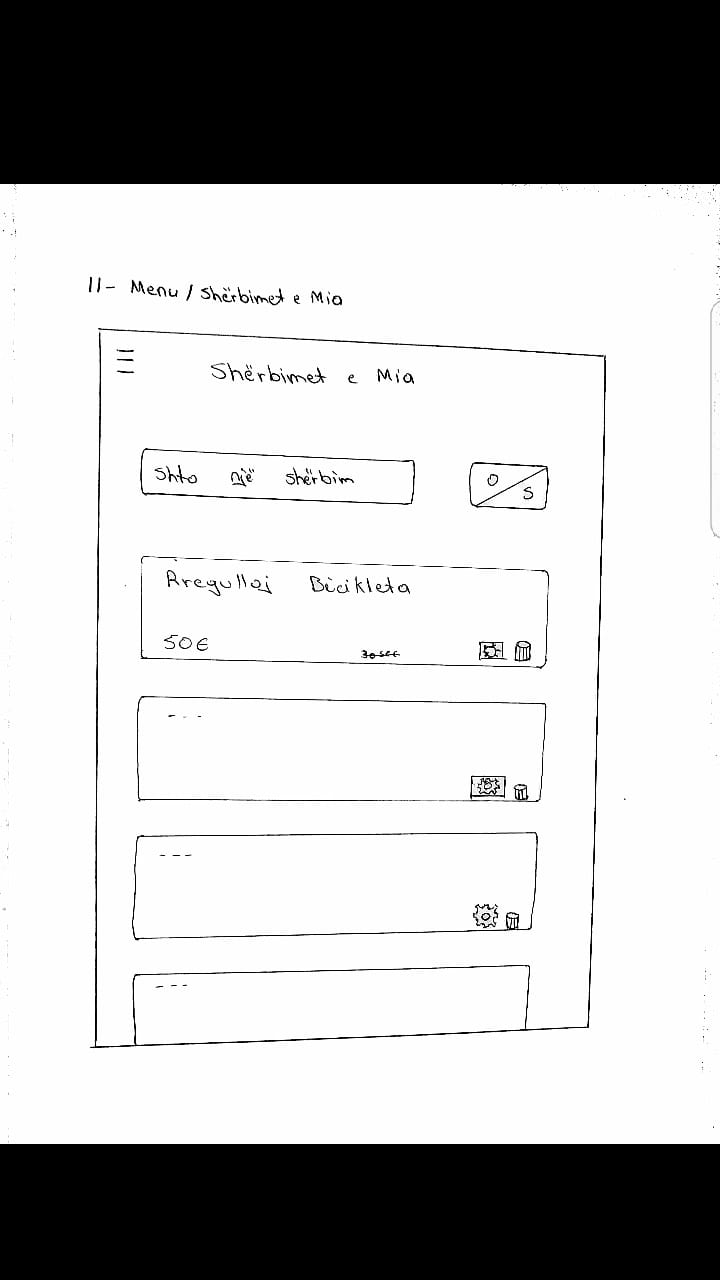 11- Menu / Shërbimet e Mia
Shërbimet e Mia
Shto një shërbim
O / S
Rregulloj Bicikleta
50€
30 sec
- - -
- - -
- - -